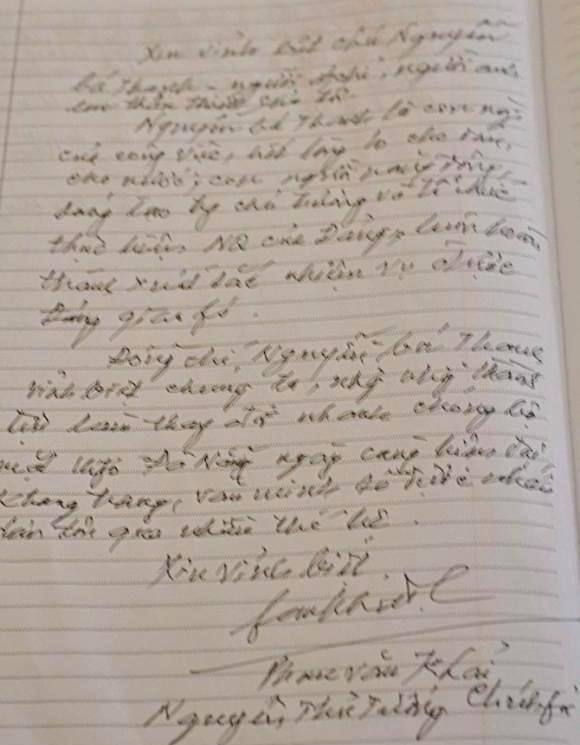 Xin vĩnh biệt chú Nguyễn
bá Thanh - người đ/chí, người anh
em thân thiết của tôi.
Nguyễn bá Thanh là con ng`
của công việc, hết lòng lo cho dân,
cho nước; con người năng động,
sáng tạo chủ trương và tổ chức
thực hiện NQ của Đảng, luôn hoàn
thành xuất sắc nhiệm vụ được
Đảng giao fó.
Đồng chí Nguyễn bá Thanh
vĩnh biệt chúng ta,
làm thay đổi nhanh chóng bộ
mặt Đà Nẵng ngày càng hiện đại,
khang trang, văn minh
qua nhiều thế hệ.
Xin vĩnh biệt
Phan văn Khải
Nguyên Thủ Tướng Chính fủ